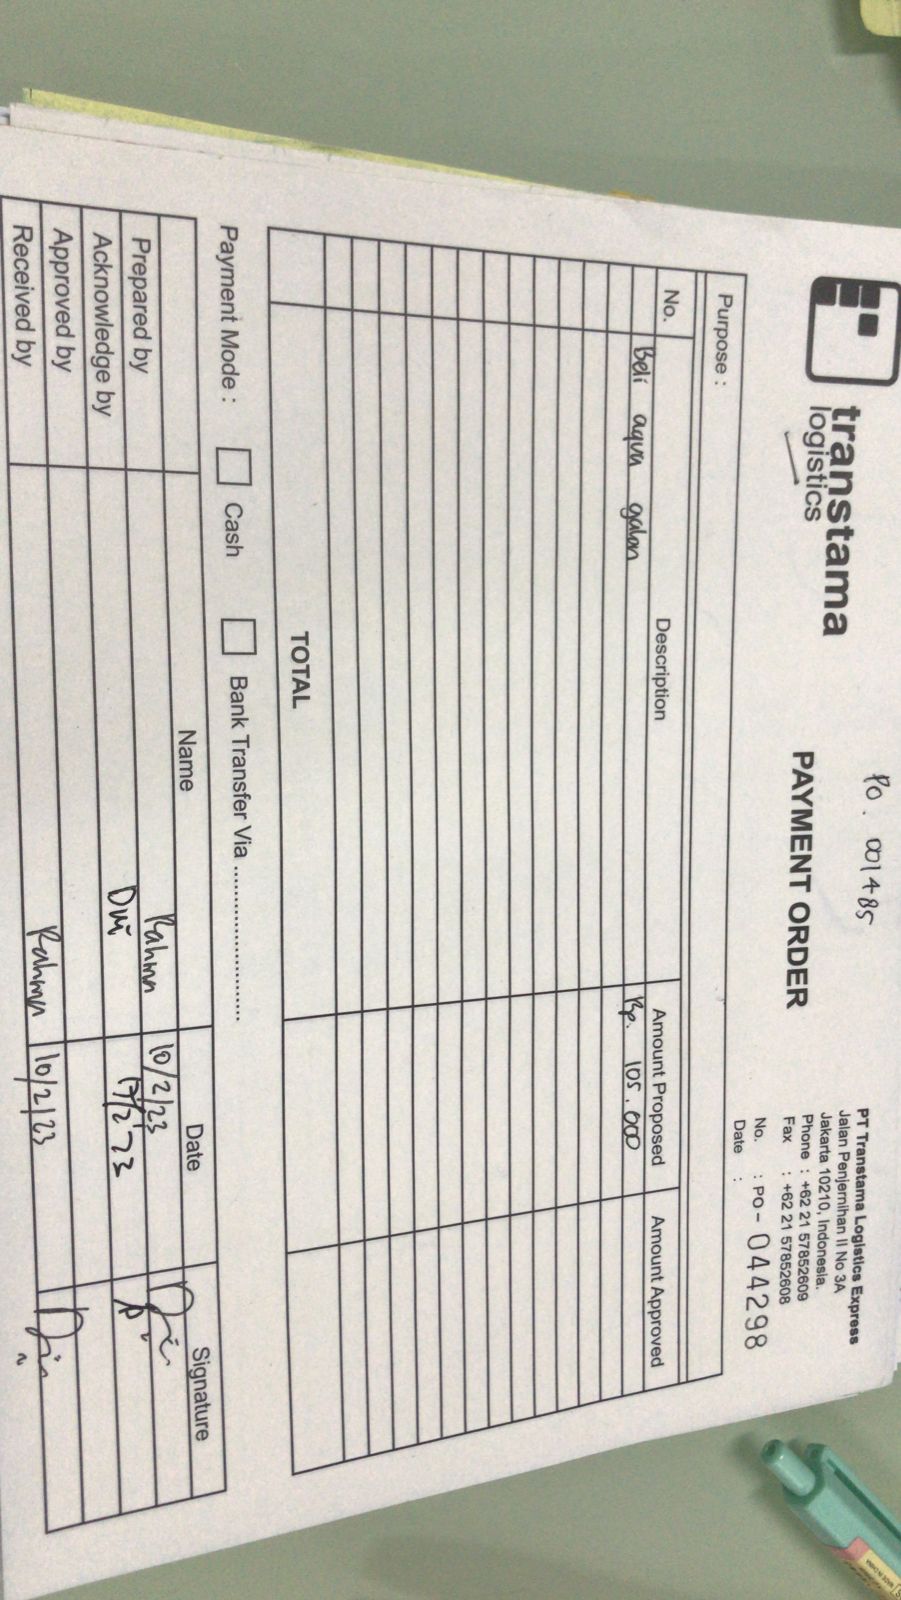 PO. 001485
transtama
logistics
PAYMENT ORDER
PT Transtama Logistics Express
Jalan Penjernihan II No 3A
Jakarta 10210, Indonesia.
Phone : +62 21 57852609
Fax : +62 21 57852608
No. : PO- 044298
Date :
Purpose :
No. Description Amount Proposed Amount Approved
Beli aqua galon Rp. 105.000
TOTAL
Payment Mode : Cash Bank Transfer Via ......................
Name Date Signature
Prepared by Rahma 10/2/23
Acknowledge by Dwi 17/2'23
Approved by
Received by Rahma 10/2/23